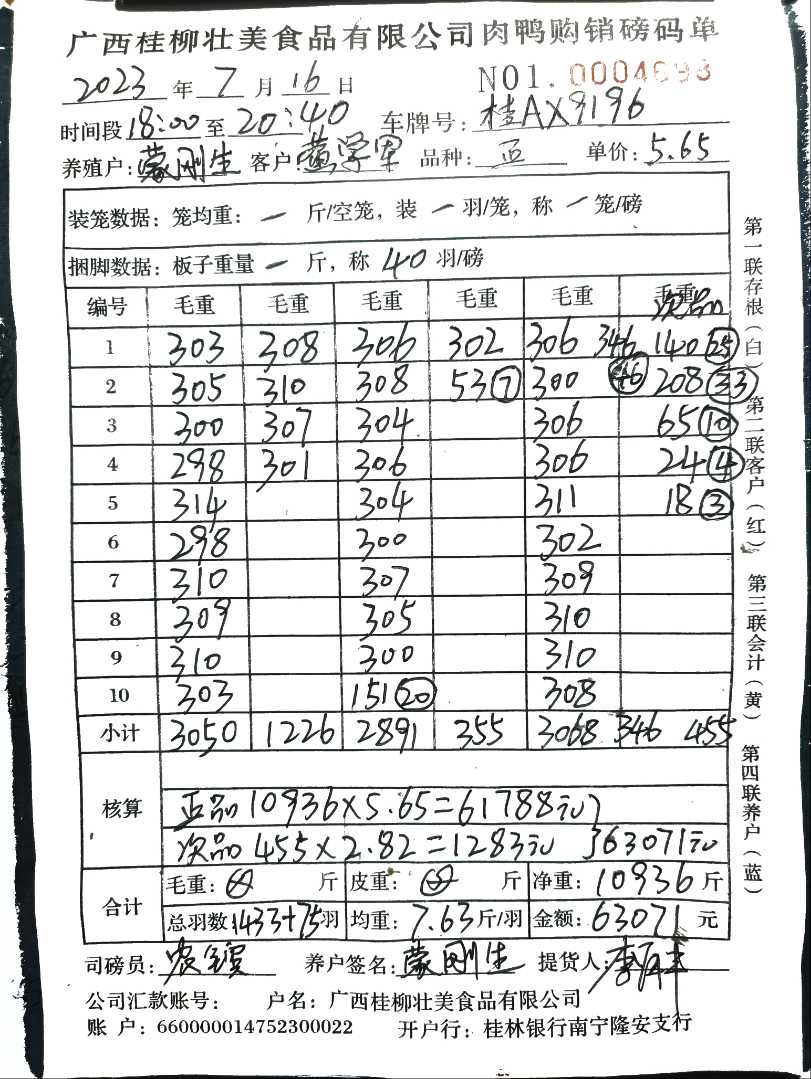 广西桂柳壮美食品有限公司肉鸭购销磅码单
2023 年 7 月 16 日 NO1. 0004693
时间段 18:00 至 20:40 车牌号: 桂AX9196
养殖户: 蒙刚生 客户: 黄学军 品种: 正 单价: 5.65
装笼数据: 笼均重: 一 斤/空笼, 装 一 羽/笼, 称 一 笼/磅
捆脚数据: 板子重量 一 斤, 称 40 羽/磅
编号 毛重 毛重 毛重 毛重 毛重 毛重 次品
1 303 308 306 302 306 346 140 25
2 305 310 308 53 7 300 46 208 33
3 300 307 304 306 65 10
4 298 301 306 306 24 4
5 314 304 311 18 3
6 298 300 302
7 310 307 309
8 309 305 310
9 310 300 310
10 303 151 20 308
小计 3050 1226 2891 355 3068 346 455
核算
正品 10936×5.65=61788元
次品 455×2.82=1283元 } 63071元
合计
毛重: 斤 皮重: 斤 净重: 10936 斤
总羽数 1433+75 羽 均重: 7.63 斤/羽 金额: 63071 元
司磅员: 养户签名: 蒙刚生 提货人:
公司汇款账号: 户名: 广西桂柳壮美食品有限公司
账 户: 660000014752300022 开户行: 桂林银行南宁隆安支行
第一联存根(白) 第二联客户(红) 第三联会计(黄) 第四联养户(蓝)